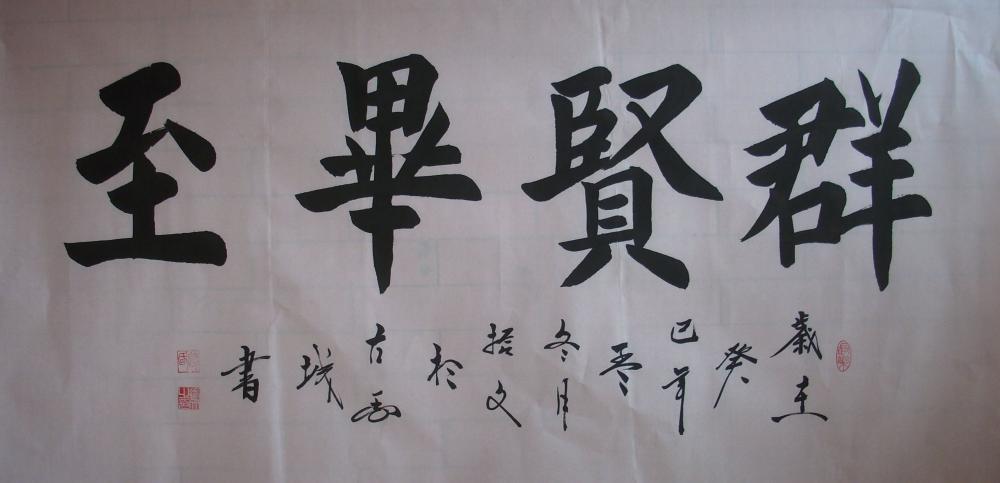 群賢畢至
歲在癸巳年冬月拾文於古城書